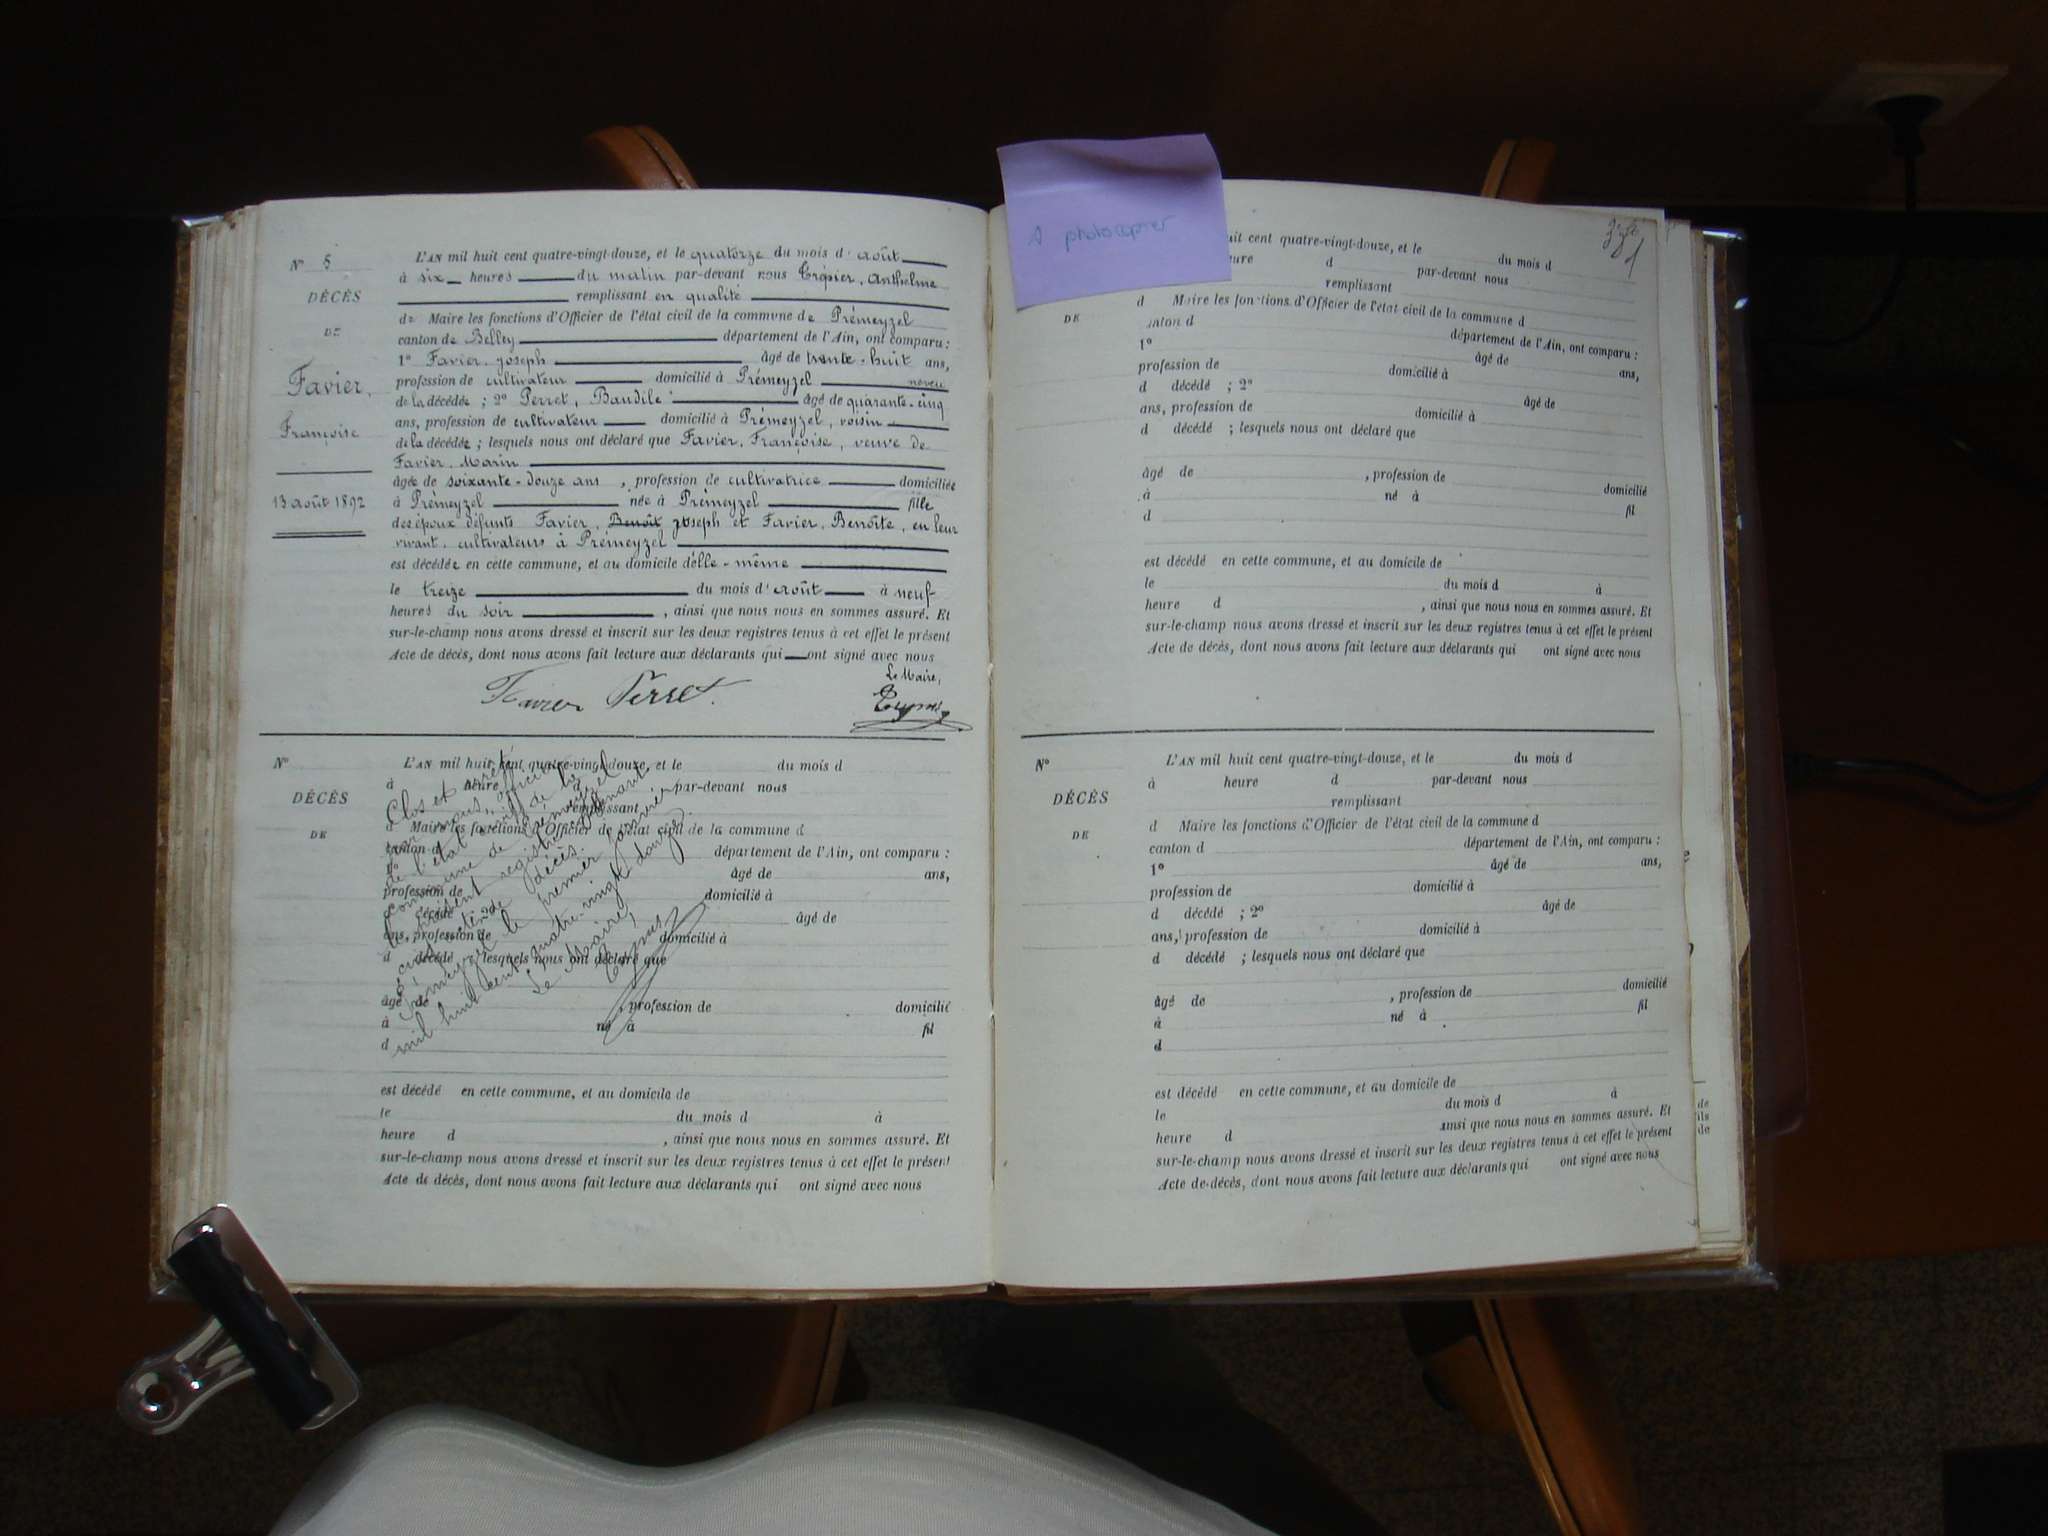 N° 8
DÉCÈS
DE
Favier,
Françoise
13 août 1892
L'AN mil huit cent quatre-vingt-douze, et le quatorze du mois d'août
à six heures du matin par-devant nous Trépier, Anthelme
remplissant en qualité
de Maire les fonctions d'Officier de l'état civil de la commune de Prémeyzel
canton de Belley département de l'Ain, ont comparu :
1° Favier, joseph âgé de trente-huit ans,
profession de cultivateur domicilié à Prémeyzel neveu
de la décédée ; 2° Perret, Baudile âgé de quarante-cinq
ans, profession de cultivateur domicilié à Prémeyzel, voisin
de la décédée ; lesquels nous ont déclaré que Favier, Françoise, veuve de
Favier, Marin
âgée de soixante-douze ans, profession de cultivatrice domiciliée
à Prémeyzel née à Prémeyzel fille
des époux défunts Favier, Benoît joseph et Favier, Benoîte, en leur
vivant cultivateurs à Prémeyzel
est décédée en cette commune, et au domicile d'elle-même
le treize du mois d'août à neuf
heures du soir, ainsi que nous nous en sommes assuré. Et
sur-le-champ nous avons dressé et inscrit sur les deux registres tenus à cet effet le présent
Acte de décès, dont nous avons fait lecture aux déclarants qui ont signé avec nous
Le Maire,
Favier Perret
N°
DÉCÈS
DE
L'AN mil huit cent quatre-vingt-douze, et le du mois d
à heure par-devant nous
remplissant
d Maire les fonctions d'Officier de l'état civil de la commune d
canton d département de l'Ain, ont comparu :
1° âgé de ans,
profession de domicilié à
d décédé ; 2° âgé de
ans, profession de domicilié à
d décédé ; lesquels nous ont déclaré que
âgé de , profession de domicilié
à né à fil
d
est décédé en cette commune, et au domicile de
le du mois d à
heure d , ainsi que nous nous en sommes assuré. Et
sur-le-champ nous avons dressé et inscrit sur les deux registres tenus à cet effet le présent
Acte de décès, dont nous avons fait lecture aux déclarants qui ont signé avec nous
Clos et arrêté
par nous, officier
de l'état civil de la
commune de Prémeyzel
le présent registre contenant
décès.
Prémeyzel le premier janvier
mil huit cent quatre-vingt douze.
Le Maire,
A photocopier
huit cent quatre-vingt-douze, et le du mois d
heure d par-devant nous
remplissant
DE
d Maire les fonctions d'Officier de l'état civil de la commune d
canton d département de l'Ain, ont comparu :
1° âgé de ans,
profession de domicilié à
d décédé ; 2° âgé de
ans, profession de domicilié à
d décédé ; lesquels nous ont déclaré que
âgé de , profession de domicilié
à né à fil
d
est décédé en cette commune, et au domicile de
le du mois d à
heure d , ainsi que nous nous en sommes assuré. Et
sur-le-champ nous avons dressé et inscrit sur les deux registres tenus à cet effet le présent
Acte de décès, dont nous avons fait lecture aux déclarants qui ont signé avec nous
N°
DÉCÈS
DE
L'AN mil huit cent quatre-vingt-douze, et le du mois d
à heure d par-devant nous
remplissant
d Maire les fonctions d'Officier de l'état civil de la commune d
canton d département de l'Ain, ont comparu :
1° âgé de ans,
profession de domicilié à
d décédé ; 2° âgé de
ans, profession de domicilié à
d décédé ; lesquels nous ont déclaré que
âgé de , profession de domicilié
à né à fil
d
est décédé en cette commune, et au domicile de
le du mois d à
heure d ainsi que nous nous en sommes assuré. Et
sur-le-champ nous avons dressé et inscrit sur les deux registres tenus à cet effet le présent
Acte de décès, dont nous avons fait lecture aux déclarants qui ont signé avec nous
de
ils
de